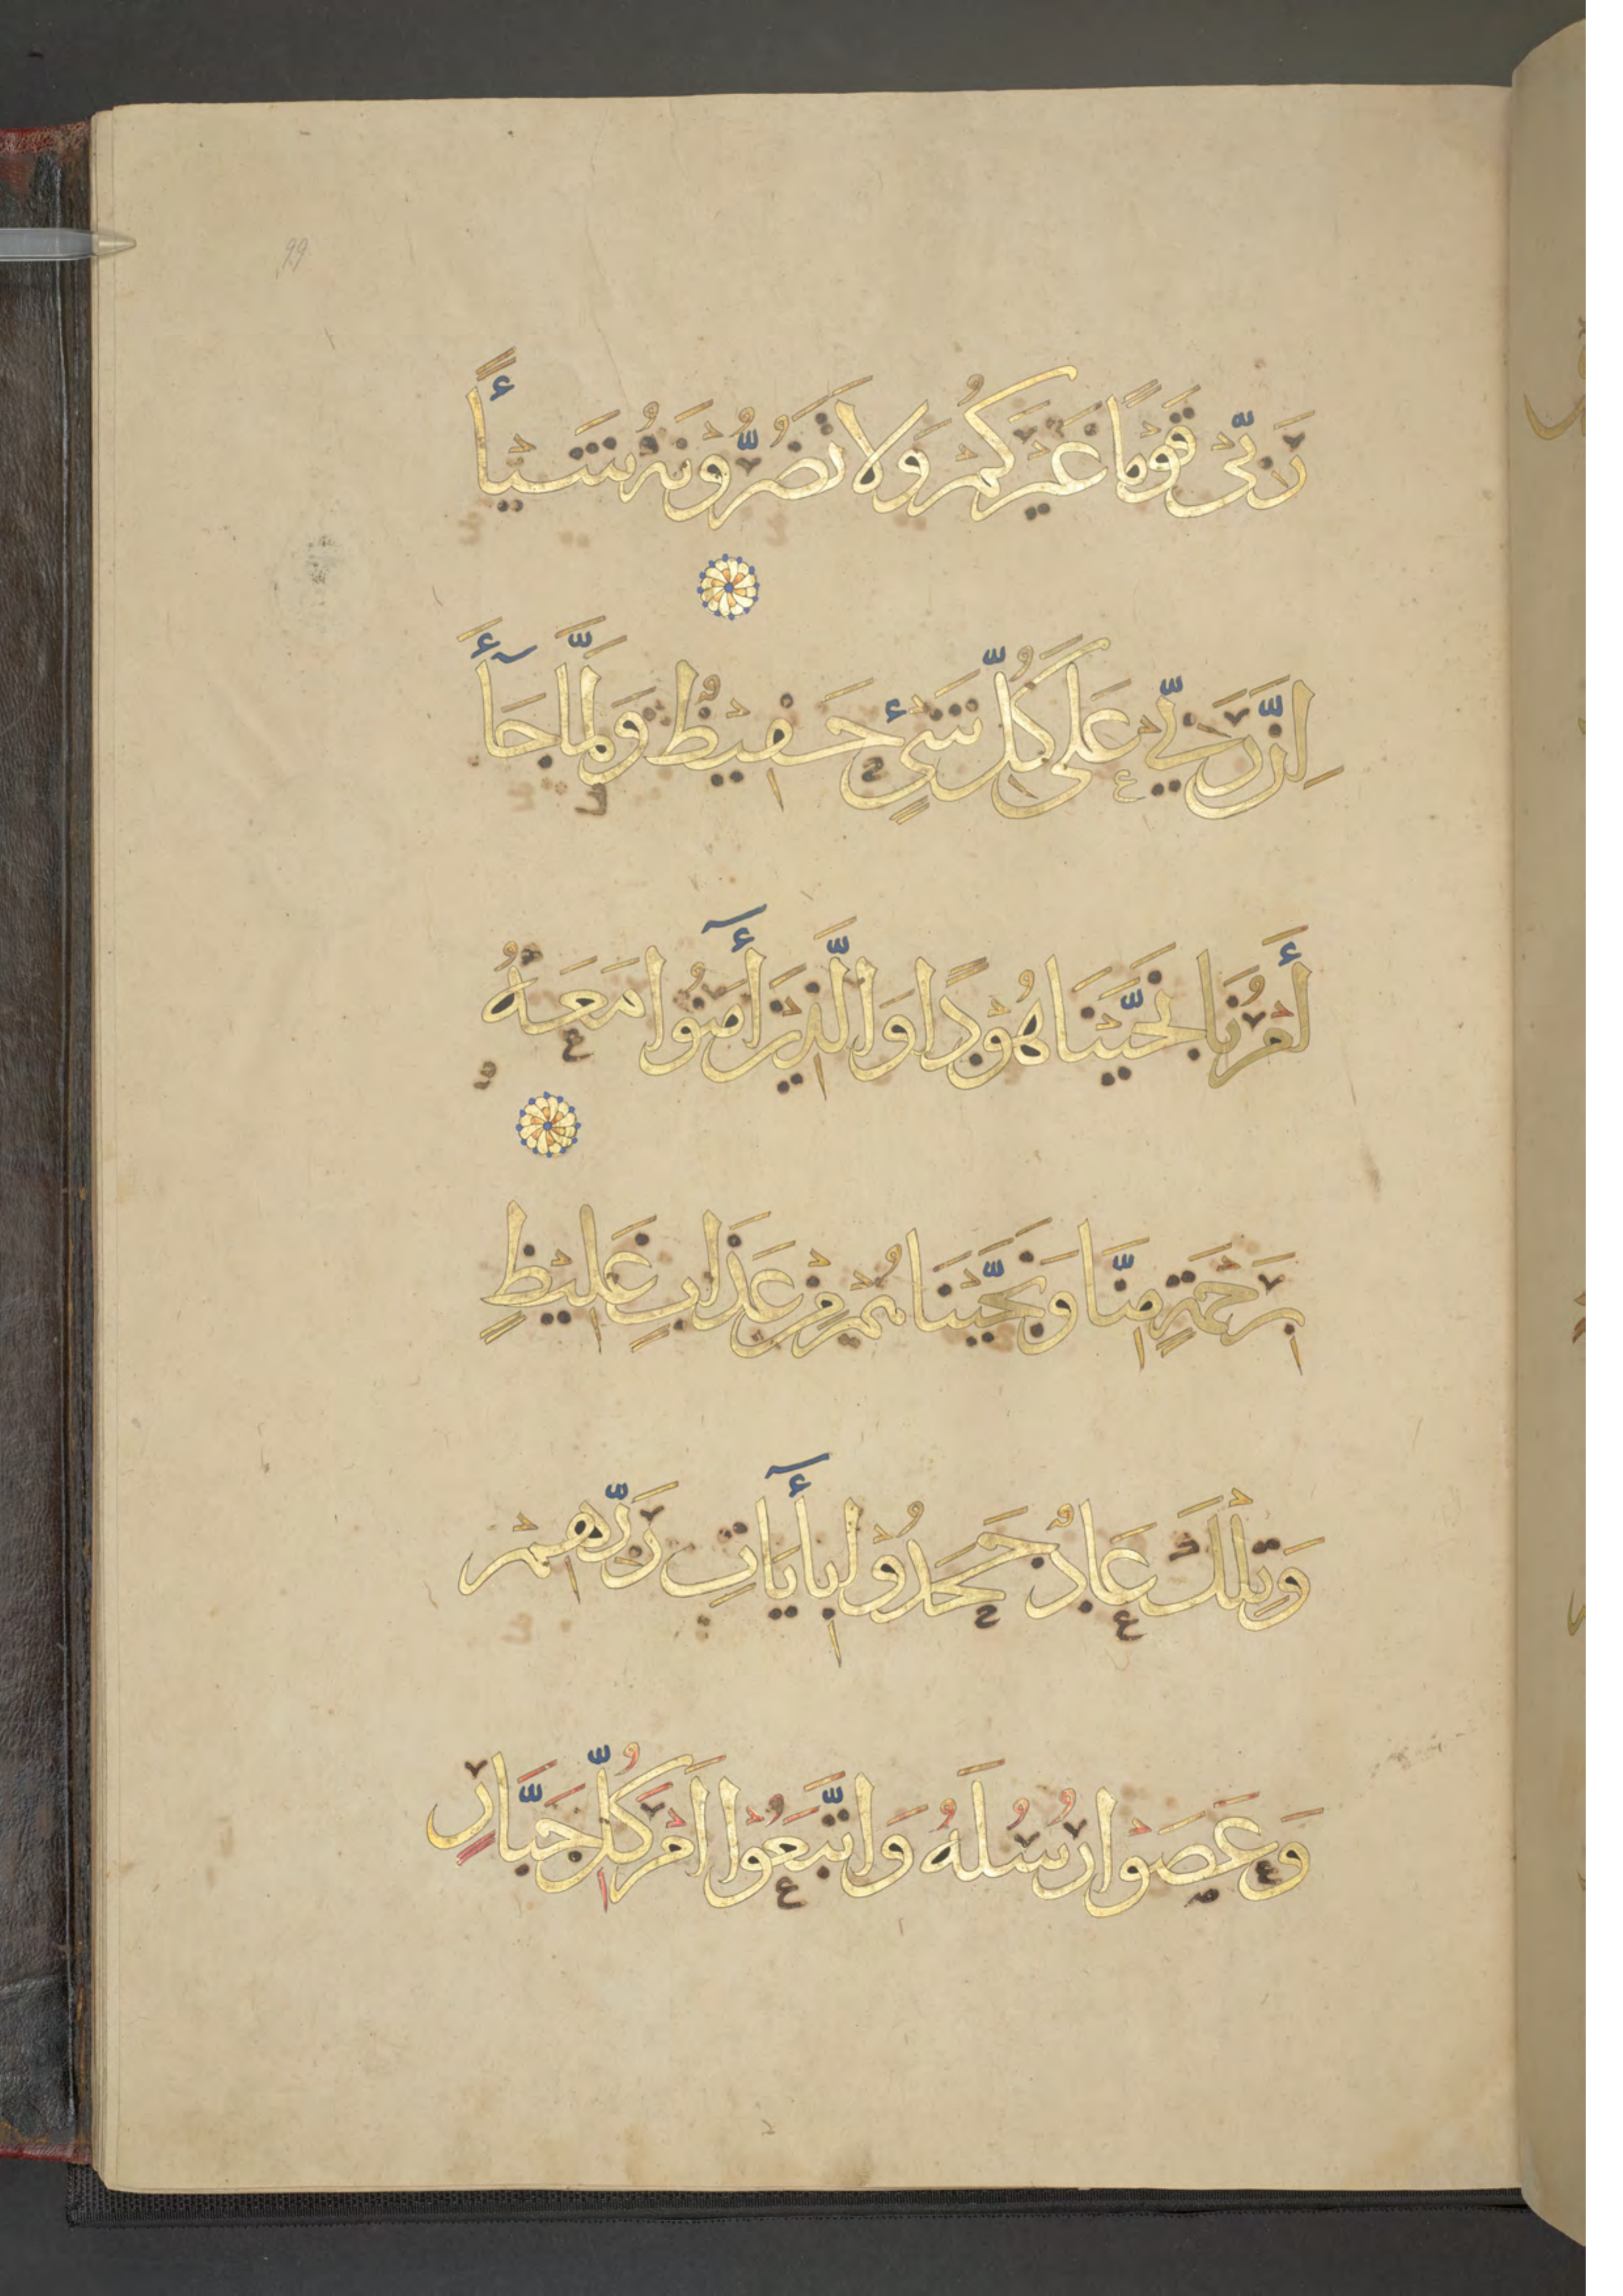 99
رَبِّى قَوْمًا غَيْرَكُمْ وَلَا تَضُرُّوْنَهُ شَيْـًٔا
اِنَّ رَبِّيْ عَلَى كُلِّ شَىْءٍ حَفِيْظٌ وَلَمَّا جَآءَ
أَمْرُنَا نَجَّيْنَا هُوْدًا وَالَّذِيْنَ أٓمَنُوْا مَعَهُ
بِرَحْمَةٍ مِنَّا وَنَجَّيْنَاهُمْ مِنْ عَذَابٍ غَلِيْظٍ
وَتِلْكَ عَادٌ جَحَدُوْا بِأٓيَاتِ رَبِّهِمْ
وَعَصَوْا رُسُلَهُ وَاتَّبَعُوْا اَمْرَ كُلِّ جَبَّارٍ